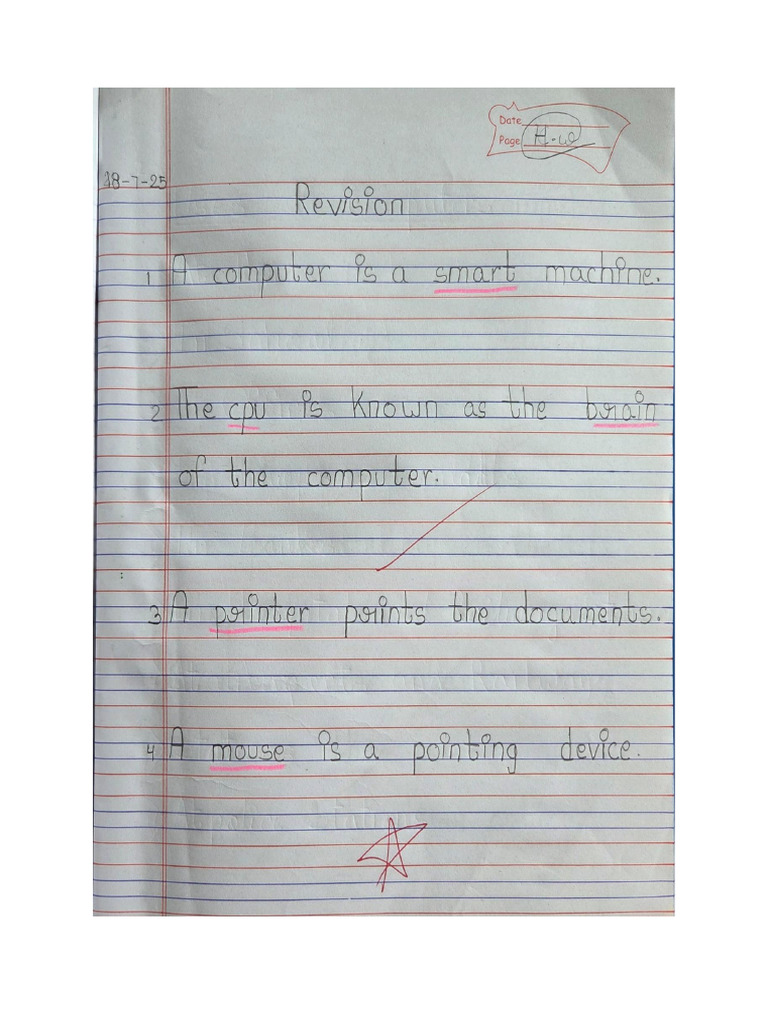 Date
Page H-W
18-7-25
Revision
1 A computer is a smart machine.
2 The cpu is known as the brain
of the computer.
3 A printer prints the documents.
4 A mouse is a pointing device.